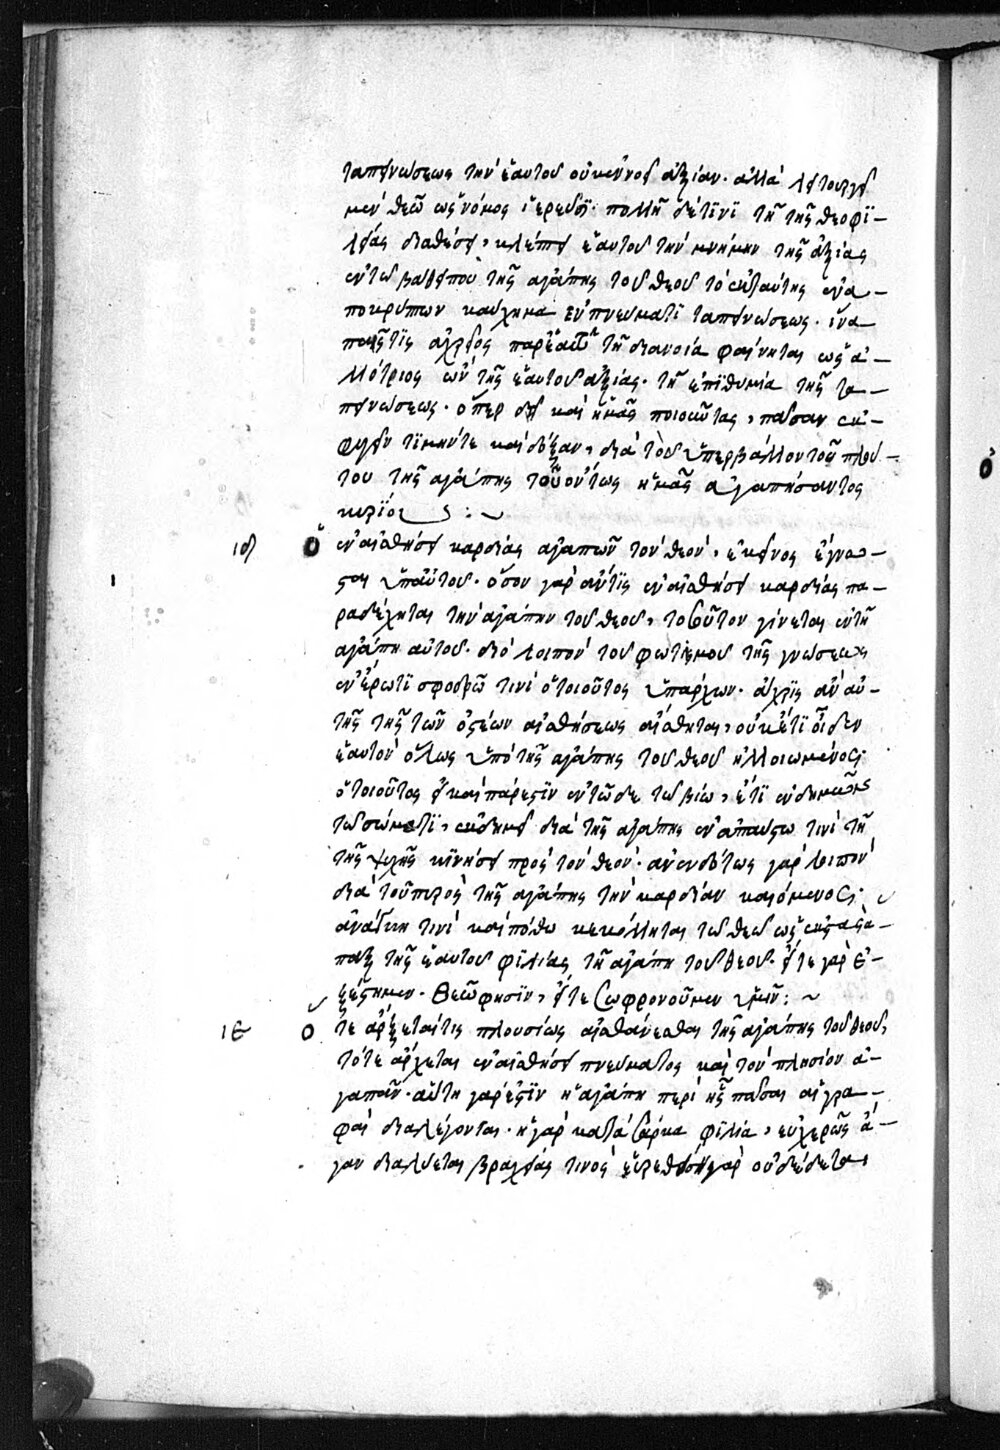 ταπεινώσεως τὴν ἑαυτοῦ οὐκ ἐννοεῖ ἀξίαν· ἀλλὰ λειτουργεῖ
μὲν θεῶ ὡς νόμος ἱερεῦσϊ· πολλῆ δέ τϊνϊ τῆ τῆς θεοφϊ-
λείας διαθέσει, κλέπτει ἑαυτοῦ τὴν μνήμην τῆς ἀξίας
ἐν τῶ βάθει που τῆς ἀγάπης τοῦ θεοῦ τὸ ἐκ ταύτης ἐνα-
ποκρύπτων καύχημα ἐν πνεύματϊ ταπεινώσεως· ἵνα
πάντϊς ἀχρεῖος παρ' ἑαυτῶ τῆ διανοία φαίνηται ὡς ἀ-
λλότριος ὢν τῆς ἑαυτοῦ ἀξίας· τῆ ἐπϊθυμία τῆς τα-
πεινώσεως· ὅπερ δεῖ καὶ ἡμᾶς ποιοῦντας, πᾶσαν ἐκ-
φυγεῖν τϊμήν τε καὶ δόξαν, διὰ τὸν ὑπερβάλλον τοῦ πλού-
του τῆς ἀγάπης τοῦ ὄντως ἡμᾶς ἀγαπήσαντος
κυρϊου :
ιδ Ὁ ἐν αἰσθήσει καρδίας ἀγαπῶν τὸν θεὸν, ἐκεῖνος ἔγνω-
σται ὑπ' αὐτοῦ· ὅσον γὰρ ἄν τϊς ἐν αἰσθήσει καρδίας πα-
ραδέχηται τὴν ἀγάπην τοῦ θεοῦ, τοσοῦτον γίνεται ἐν τῆ
ἀγάπη αὐτοῦ· διὸ λοιπὸν τοῦ φωτϊσμοῦ τῆς γνώσεως
ἐν ἔρωτϊ σφοδρῶ τινὶ ὁ τοιοῦτος ὑπάρχων· ἄχρϊς ἂν αὐ-
τῆς τῆς τῶν ὀστέων αἰσθήσεως αἴσθηται, οὐκέτϊ εἰδὲν
ἑαυτὸν ὅλως ὑπὸ τῆς ἀγάπης τοῦ θεοῦ ἠλλοιωμένος·
ὁ τοιοῦτος εἰ καὶ πάρεστϊν ἐν τῶδε τῶ βίω, ἔτϊ ἐνδημῶν
τῶ σώματϊ, ἐκδημεῖ διὰ τῆς ἀγάπης ἐναπαύστω τινὶ τῆ
τῆς ψυχῆς κϊνήσει πρὸς τὸν θεὸν· ἀνενδότως γὰρ λοιπὸν
διὰ τοῦ πυρὸς τῆς ἀγάπης τὴν καρδίαν καιόμενος·
ἀνάγκη τινὶ καὶ πόθω κεκόλληται τῶ θεῶ ὡς ἐκστὰς ἅ-
παξ τῆς ἑαυτοῦ φϊλίας τῆ ἀγάπη τοῦ θεοῦ. εἴτε γὰρ ἐ-
ξέστημεν· θεῶ φησϊν, εἴτε σωφρονοῦμεν ὑμῖν:
ιε Ὅτε ἄρξεταί τις πλουσίως αἰσθάνεσθαι τῆς ἀγάπης τοῦ θεοῦ,
τότε ἄρχεται ἐν αἰσθήσει πνεύματος καὶ τὸν πλησίον ἀ-
γαπᾶν· αὕτη γάρ ἐστϊν ἡ ἀγάπη περὶ ἧς πᾶσαι αἱ γρα-
φαὶ διαλέγονται· ἡ γὰρ κατὰ σάρκα φϊλία, εὐχερῶς ἄ-
γαν διαλύεται βραχείας τινὸς εὑρεθείσης γὰρ οὐ δέδεται